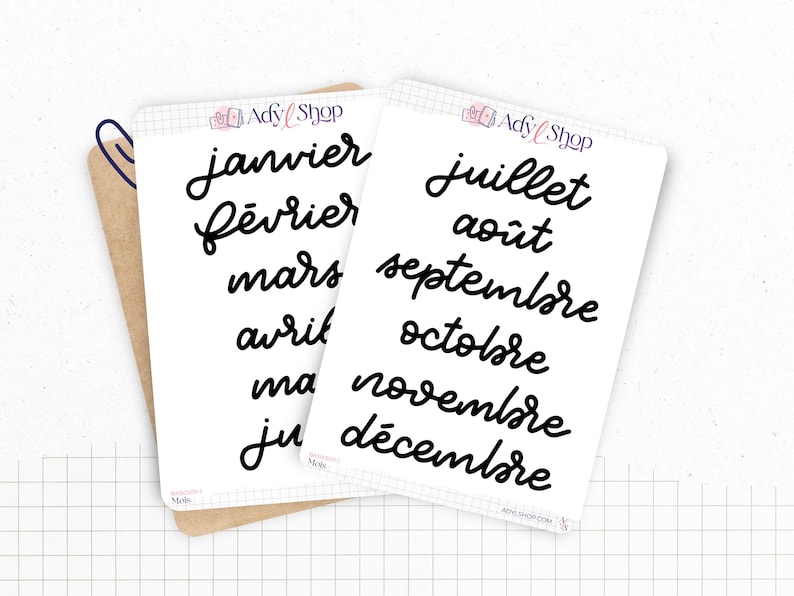 Adyl Shop
janvier
février
mars
avril
ma
ju
BASICS011-1
Mois
Adyl Shop
juillet
août
septembre
octobre
novembre
décembre
Mois
ADYLSHOP.COM